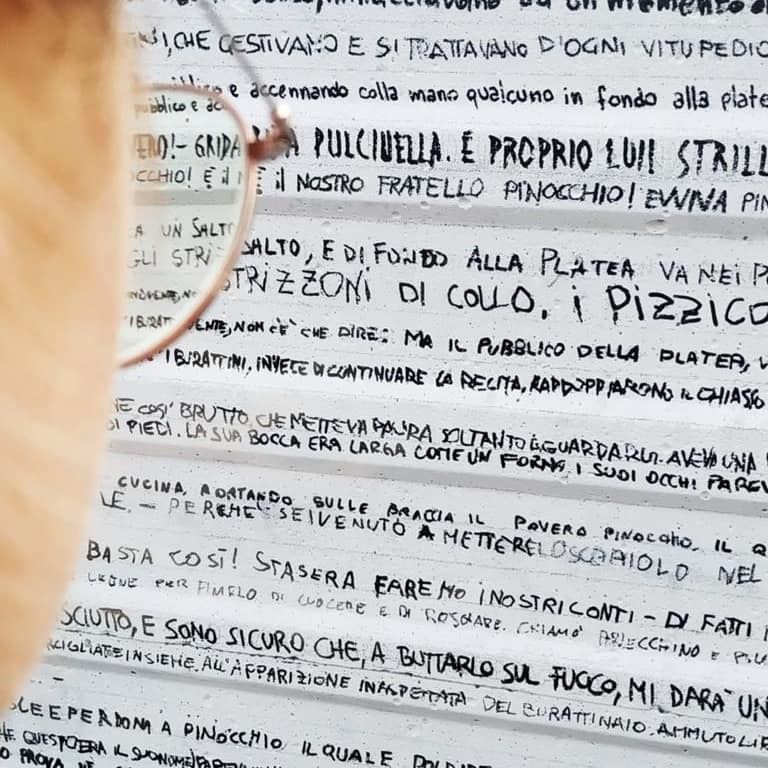 CHE GESTIVANO E SI TRATTAVANO D'OGNI VITUPEDIO
e accennando colla mano qualcuno in fondo alla plate
GRIDA PULCINELLA. È PROPRIO LUI! STRILL
È il NOSTRO FRATELLO PINOCCHIO! EVVIVA PIN
A UN SALTO, E DI FONDO ALLA PLATEA VA NEI P
GLI STRIZZONI DI COLLO, i PIZZICO
NON C'È CHE DIRE: MA IL PUBBLICO DELLA PLATEA, V
I BURATTINI, INVECE DI CONTINUARE LA RECITA, RADDOPPIARONO IL CHIASSO
COSI' BRUTTO, CHE METTEVA PAURA SOLTANTO A GUARDARLO. AVEVA UNA
DI PIEDI. LA SUA BOCCA ERA LARGA COME UN FORNO, I SUOI OCCHI PAREV
CUCINA, PORTANDO SULLE BRACCIA IL POVERO PINOCCHIO, IL Q
LE. - PERCHÉ SEI VENUTO A METTERE LO SCOMPIGLIO NEL
BASTA COSÌ! STASERA FAREMO I NOSTRI CONTI - DI FATTI
E DI ROSOLARE. CHIAMÒ ARLECCHINO E PUL
SCIUTTO, E SONO SICURO CHE, A BUTTARLO SUL FUOCO, MI DARÀ UN
INSIEME. ALL'APPARIZIONE INASPETTATA DEL BURATTINAIO, AMMUTOLIR
E PERDONA A PINOCCHIO, IL QUALE
HE QUESTO ERA IL SUO NOME